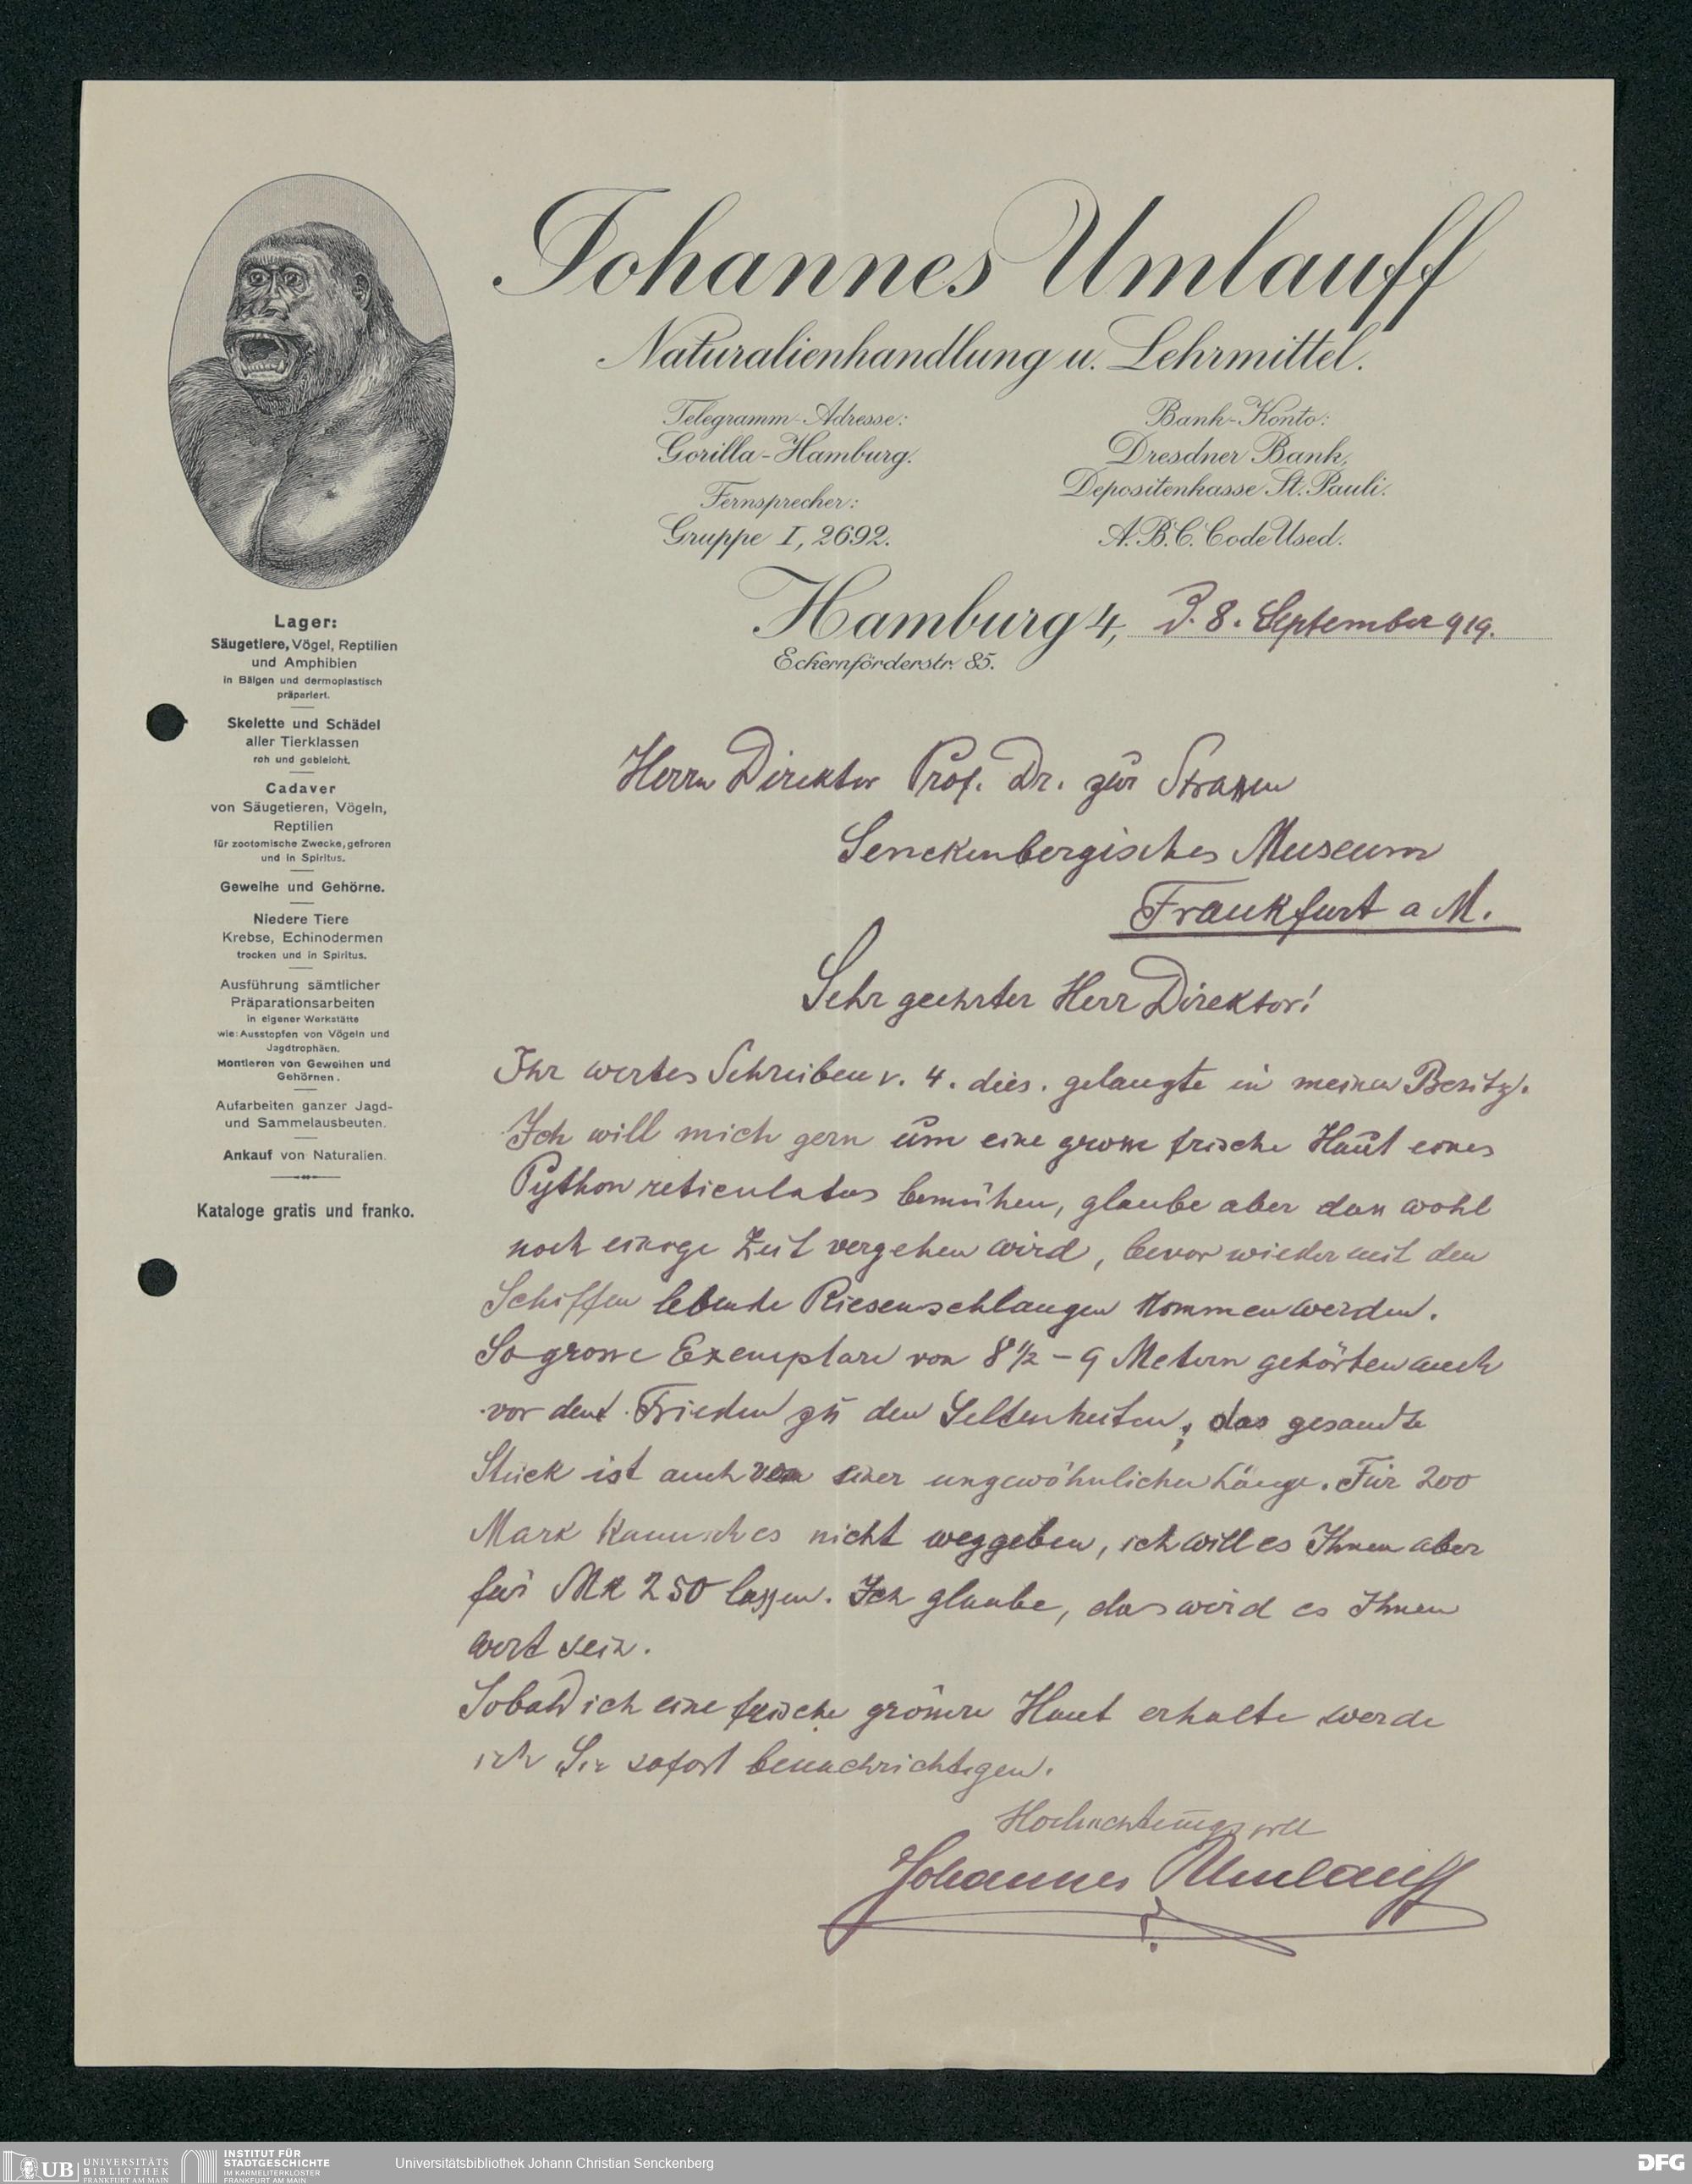 Johannes Umlauff
Naturalienhandlung u. Lehrmittel.
Telegramm-Adresse:
Gorilla-Hamburg.
Fernsprecher:
Gruppe I, 2692.
Bank-Konto:
Dresdner Bank,
Depositenkasse St. Pauli.
A.B.C. Code Used.
Hamburg 4, 8. September 919.
Eckernförderstr. 85.
Lager:
Säugetiere, Vögel, Reptilien
und Amphibien
in Bälgen und dermoplastisch
präpariert.
Skelette und Schädel
aller Tierklassen
roh und gebleicht.
Cadaver
von Säugetieren, Vögeln,
Reptilien
für zootomische Zwecke, gefroren
und in Spiritus.
Geweihe und Gehörne.
Niedere Tiere
Krebse, Echinodermen
trocken und in Spiritus.
Ausführung sämtlicher
Präparationsarbeiten
in eigener Werkstätte
wie: Ausstopfen von Vögeln und
Jagdtrophäen.
Montieren von Geweihen und
Gehörnen.
Aufarbeiten ganzer Jagd-
und Sammelausbeuten.
Ankauf von Naturalien.
Kataloge gratis und franko.
Herrn Direktor Prof. Dr. zur Strassen
Senckenbergisches Museum
Frankfurt a M.
Sehr geehrter Herr Direktor!
Ihr wertes Schreiben v. 4. dies. gelangte in meinen Besitz.
Ich will mich gern um eine grosse frische Haut eines
Python reticulatus bemühen, glaube aber dass wohl
noch einige Zeit vergehen wird, bevor wieder mit den
Schiffen lebende Riesenschlangen kommen werden.
So grosse Exemplare von 8 1/2 - 9 Metern gehörten auch
vor dem Frieden zu den Seltenheiten, das gesandte
Stück ist auch von einer ungewöhnlichen Länge. Für 200
Mark kann ich es nicht weggeben, ich will es Ihnen aber
für Mk 250 lassen. Ich glaube, das wird es Ihnen
wert sein.
Sobald ich eine frische grössere Haut erhalte werde
ich Sie sofort benachrichtigen.
Hochachtungsvoll
Johannes Umlauff
UB UNIVERSITÄTS
BIBLIOTHEK
FRANKFURT AM MAIN
INSTITUT FÜR
STADTGESCHICHTE
IM KARMELITERKLOSTER
FRANKFURT AM MAIN
Universitätsbibliothek Johann Christian Senckenberg
DFG